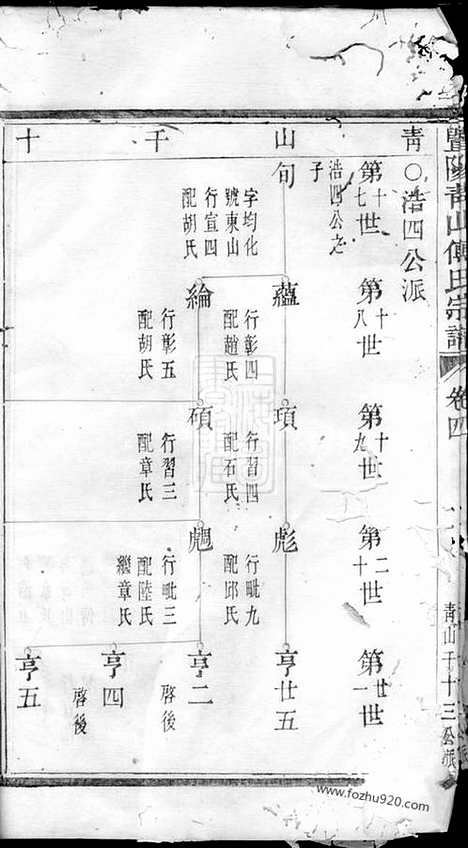 暨陽青山傅氏宗譜
卷四
青山千十三公派
青 山 千 十
○浩四公派
第十七世
第十八世
第十九世
第二十世
第廿一世
浩四公之子
旬
字均化
號東山
行宣四
配胡氏
蘊
行彰四
配趙氏
項
行習四
配石氏
彪
行毗九
配邱氏
亨廿五
綸
行彰五
配胡氏
碩
行習三
配章氏
行毗三
配陸氏
繼章氏
亨二
啓後
亨四
啓後
亨五
www.fozhu920.com